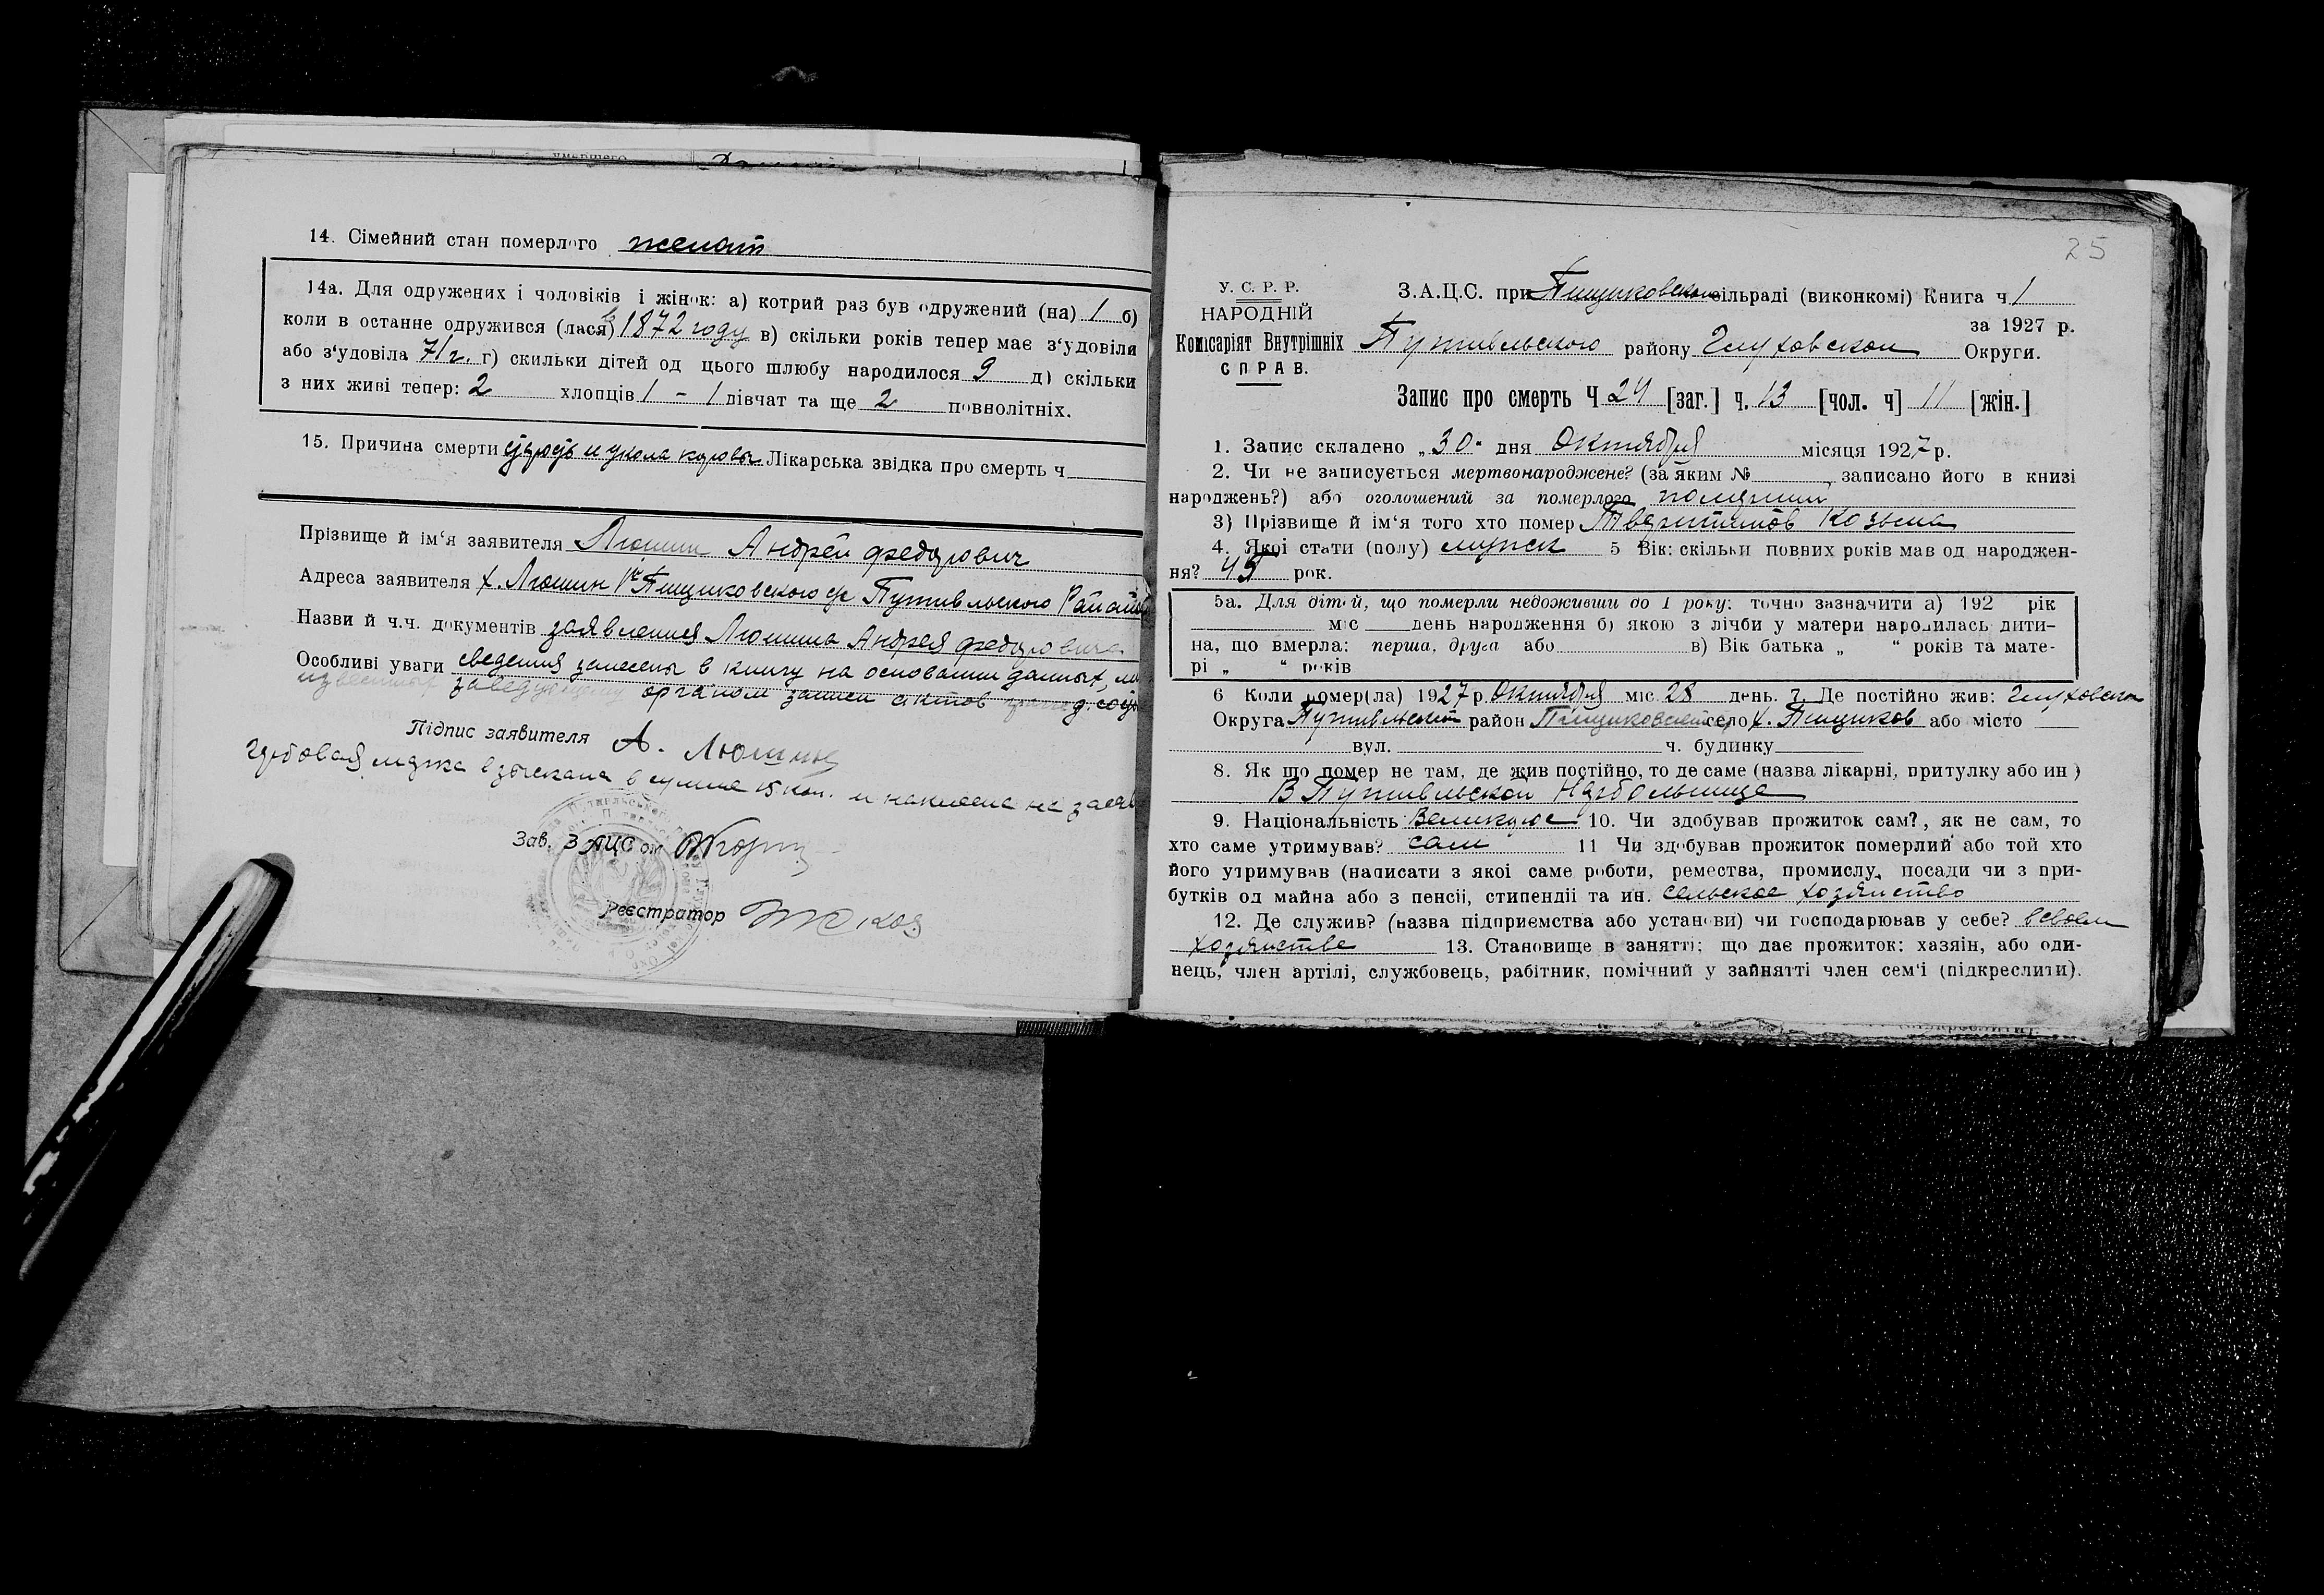 14. Сімейний стан померлого женат
14а. Для одружених і чоловіків і жінок: а) котрий раз був одружений (на) 1 б)
коли в останне одружився (лася) в 1872 году в) скільки років тепер має з‘удовіли
або з‘удовіла 71 г. г) скильки дітей од цього шлюбу народилося 9 д) скільки
з них живі тепер: 2 хлопців 1 - 1 дівчат та ще 2 повнолітніх.
15. Причина смерти коровы Лікарська звідка про смерть ч
Прізвище й ім‘я заявителя Люшин Андрей Федорович
Адреса заявителя х. Люшин Пищиковского с/с Путивльского Района
Назви й ч.ч. документів заявления Люшина Андрея Федоровича
Особливі уваги сведения занесены в книгу на основании данных,
известных заведующему органом записи актов гражд. сост
Підпис заявителя А. Люшин
Гербовая марка взыскана в сумме 15 коп. и наклеена на заяв
Зав. ЗАЦСом
Реєстратор
25
У. С. Р. Р.
НАРОДНІЙ
Комісаріят Внутрішніх
СПРАВ.
З.А.Ц.С. при Пищиковском сільраді (виконкомі) Книга ч. 1
за 1927 р.
Путивльского району Глуховской Округи.
Запис про смерть Ч 24 [заг.] ч. 13 [чол. ч] 11 [жін.]
1. Запис складено „30“ дня Октября місяця 1927 р.
2. Чи не записується мертвонароджене? (за яким № записано його в книзі
народжень?) або оголошений за померлого
3) Прізвище й ім‘я того хто помер Козьма
4. Якої стати (полу) мужск 5 Вік: скільки повних років мав од народжен-
ня? 45 рок.
5а. Для дітей, що померли недоживши до 1 року: точно зазначити а) 192 рік
міс день народження б) якою з лічби у матери народилась дити-
на, що вмерла: перша, друга або в) Вік батька „ “ років та мате-
рі „ “ років
6 Коли помер(ла) 1927 р. Октября міс 28 день. 7. Де постійно жив: Глуховской
Округа Путивльский район Пищиковский село х. Пищиков або місто
вул. ч. будинку
8. Як що помер не там, де жив постійно, то де саме (назва лікарні, притулку або ин )
В Путивльской Нарбольнице
9. Національність Великорос 10. Чи здобував прожиток сам?, як не сам, то
хто саме утримував? сам 11 Чи здобував прожиток померлий або той хто
його утримував (написати з якої саме роботи, ремества, промислу, посади чи з при-
бутків од майна або з пенсії, стипендії та ин. сельское хозяйство
12. Де служив? (назва підприємства або установи) чи господарював у себе? в своем
хозяйстве 13. Становище в занятті: що дає прожиток: хазяін, або оди-
нець, член артілі, службовець, рабітник, помічний у зайнятті член сем‘ї (підкреслити).